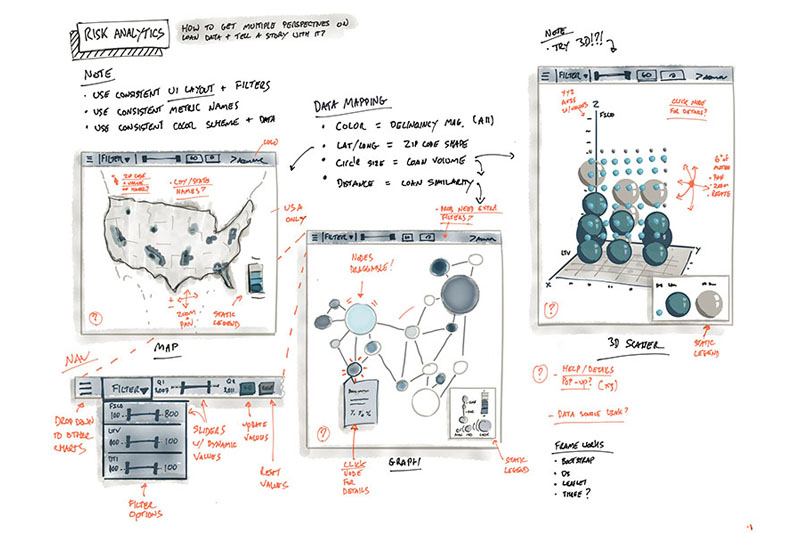 RISK ANALYTICS
HOW TO GET MULTIPLE PERSPECTIVES ON
LOAN DATA + TELL A STORY WITH IT?
NOTE
• USE CONSISTENT UI LAYOUT + FILTERS
• USE CONSISTENT METRIC NAMES
• USE CONSISTENT COLOR SCHEME + DATA
LOGO
FILTER
ZIP CODE
CITY/STATE
NAMES?
USA
ONLY
ZOOM
PAN
STATIC
LEGEND
?
MAP
DATA MAPPING
• COLOR = DELINQUENCY MAG. (All)
• LAT/LONG = ZIP CODE SHAPE
• CIRCLE SIZE = LOAN VOLUME
• DISTANCE = LOAN SIMILARITY
NEED EXTRA
FILTERS?
FILTER
NODES
DRAGGABLE!
?
CLICK
NODE
FOR
DETAILS
GRAPH
STATIC
LEGEND
NOTE
• TRY 3D!?!
FILTER
60
XYZ
AXES
Z
FICO
CLICK NODE
FOR DETAILS?
6° OF
ZOOM
ROTATE
LTV
X
Y
?
3D SCATTER
STATIC
LEGEND
? - HELP/DETAILS
POP-UP?
- DATA SOURCE LINK?
FRAMEWORKS
• BOOTSTRAP
• D3
• LEAFLET
• THREE?
NAV
FILTER
Q1
2007
Q2
2011
DROP DOWN
TO OTHER
CHARTS
FICO
100
800
LTV
100
DTI
100
SLIDERS
W/ DYNAMIC
VALUES
UPDATE
VALUES
RESET
VALUES
FILTER
OPTIONS